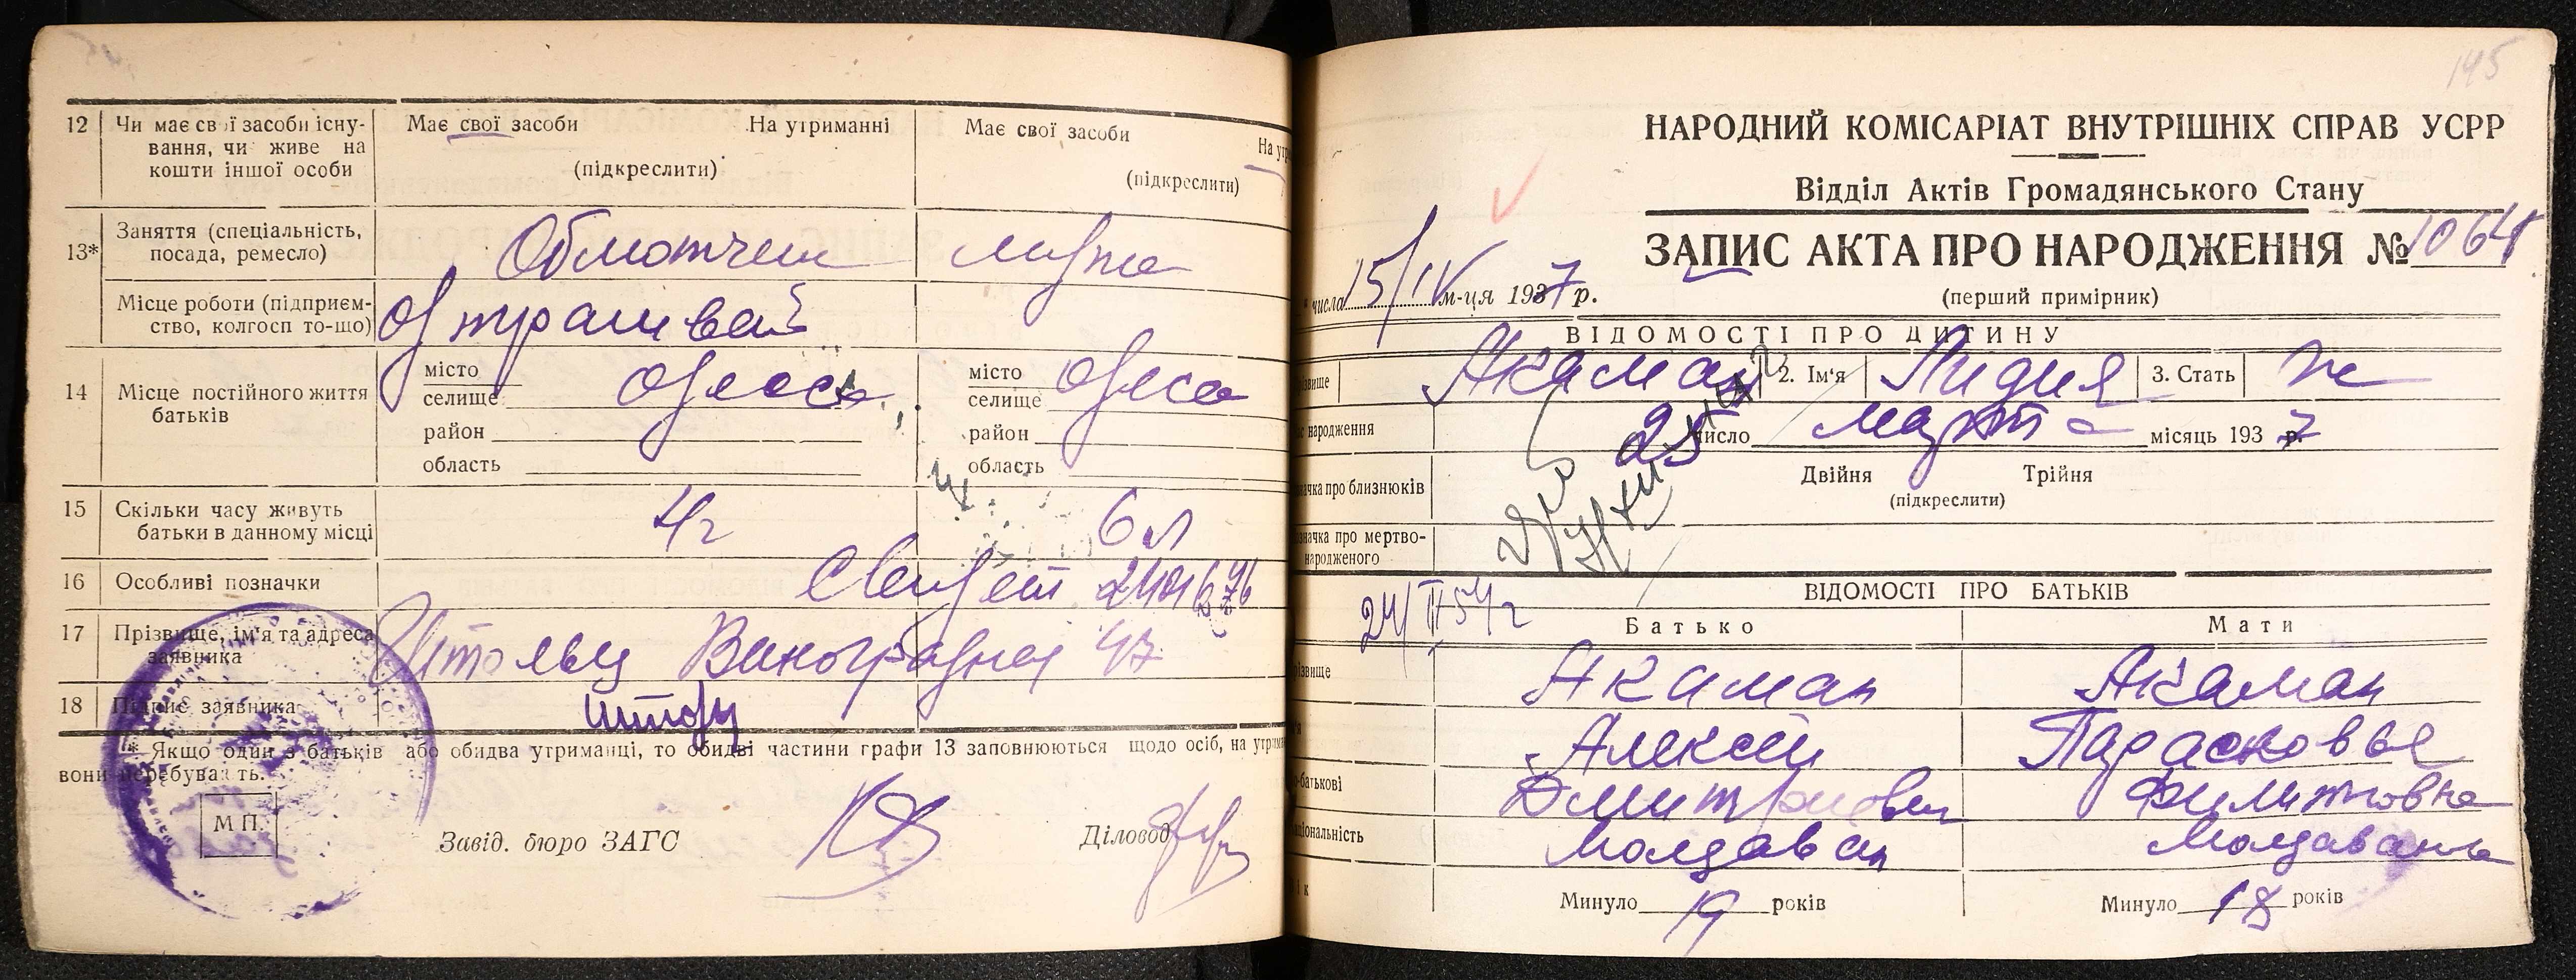 12 Чи має свої засоби існу-
вання, чи живе на
кошти іншої особи
Має свої засоби На утриманні
(підкреслити)
Має свої засоби
На утри
(підкреслити)
13* Заняття (спеціальність,
посада, ремесло)
Обмотчик
Місце роботи (підприєм-
ство, колгосп то-що)
Од трамвай
14 Місце постійного життя
батьків
місто
селище Одесса
район
область
місто
селище Одесса
район
область
15 Скільки часу живуть
батьки в данному місці
4г 6 л
16 Особливі позначки
17 Прізвище, ім'я та адреса
заявника
47
18 Підпис заявника
* Якщо один з батьків або обидва утриманці, то обидві частини графи 13 заповнюються щодо осіб, на утрима
вони перебувають.
М П.
Завід. бюро ЗАГС
Діловод
145
НАРОДНИЙ КОМІСАРІАТ ВНУТРІШНІХ СПРАВ УСРР
Відділ Актів Громадянського Стану
ЗАПИС АКТА ПРО НАРОДЖЕННЯ № 1064
числа 15/IV м-ця 1937 р.
(перший примірник)
ВІДОМОСТІ ПРО ДИТИНУ
ізвище Акиман 2. Ім'я Лидия 3. Стать ж
с народження 25 число март місяць 1937 р.
значка про близнюків
Двійня Трійня
(підкреслити)
значка про мертво-
народженого
24/II 54г
ВІДОМОСТІ ПРО БАТЬКІВ
Батько Мати
ізвище Акиман Акиман
Алексей Парасковья
о-батькові Дмитриович Филиповна
аціональність Молдаван Молдаванка
ік Минуло 19 років Минуло 18 років